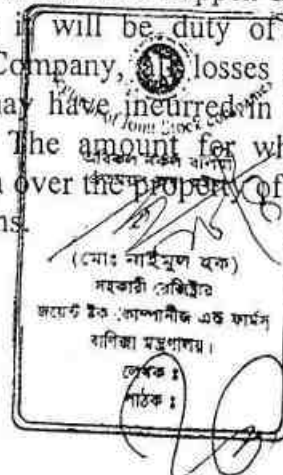 it will be duty of
Company, losses
may have incurred in
The amount for wh
over the property of
ns.
of Joint Stock Companies
(মোঃ নাইমুল হক)
সহকারী রেজিষ্ট্রার
জয়েন্ট ষ্টক কোম্পানীজ এন্ড ফার্মস
বাণিজ্য মন্ত্রণালয়।
লেখক :
পাঠক :